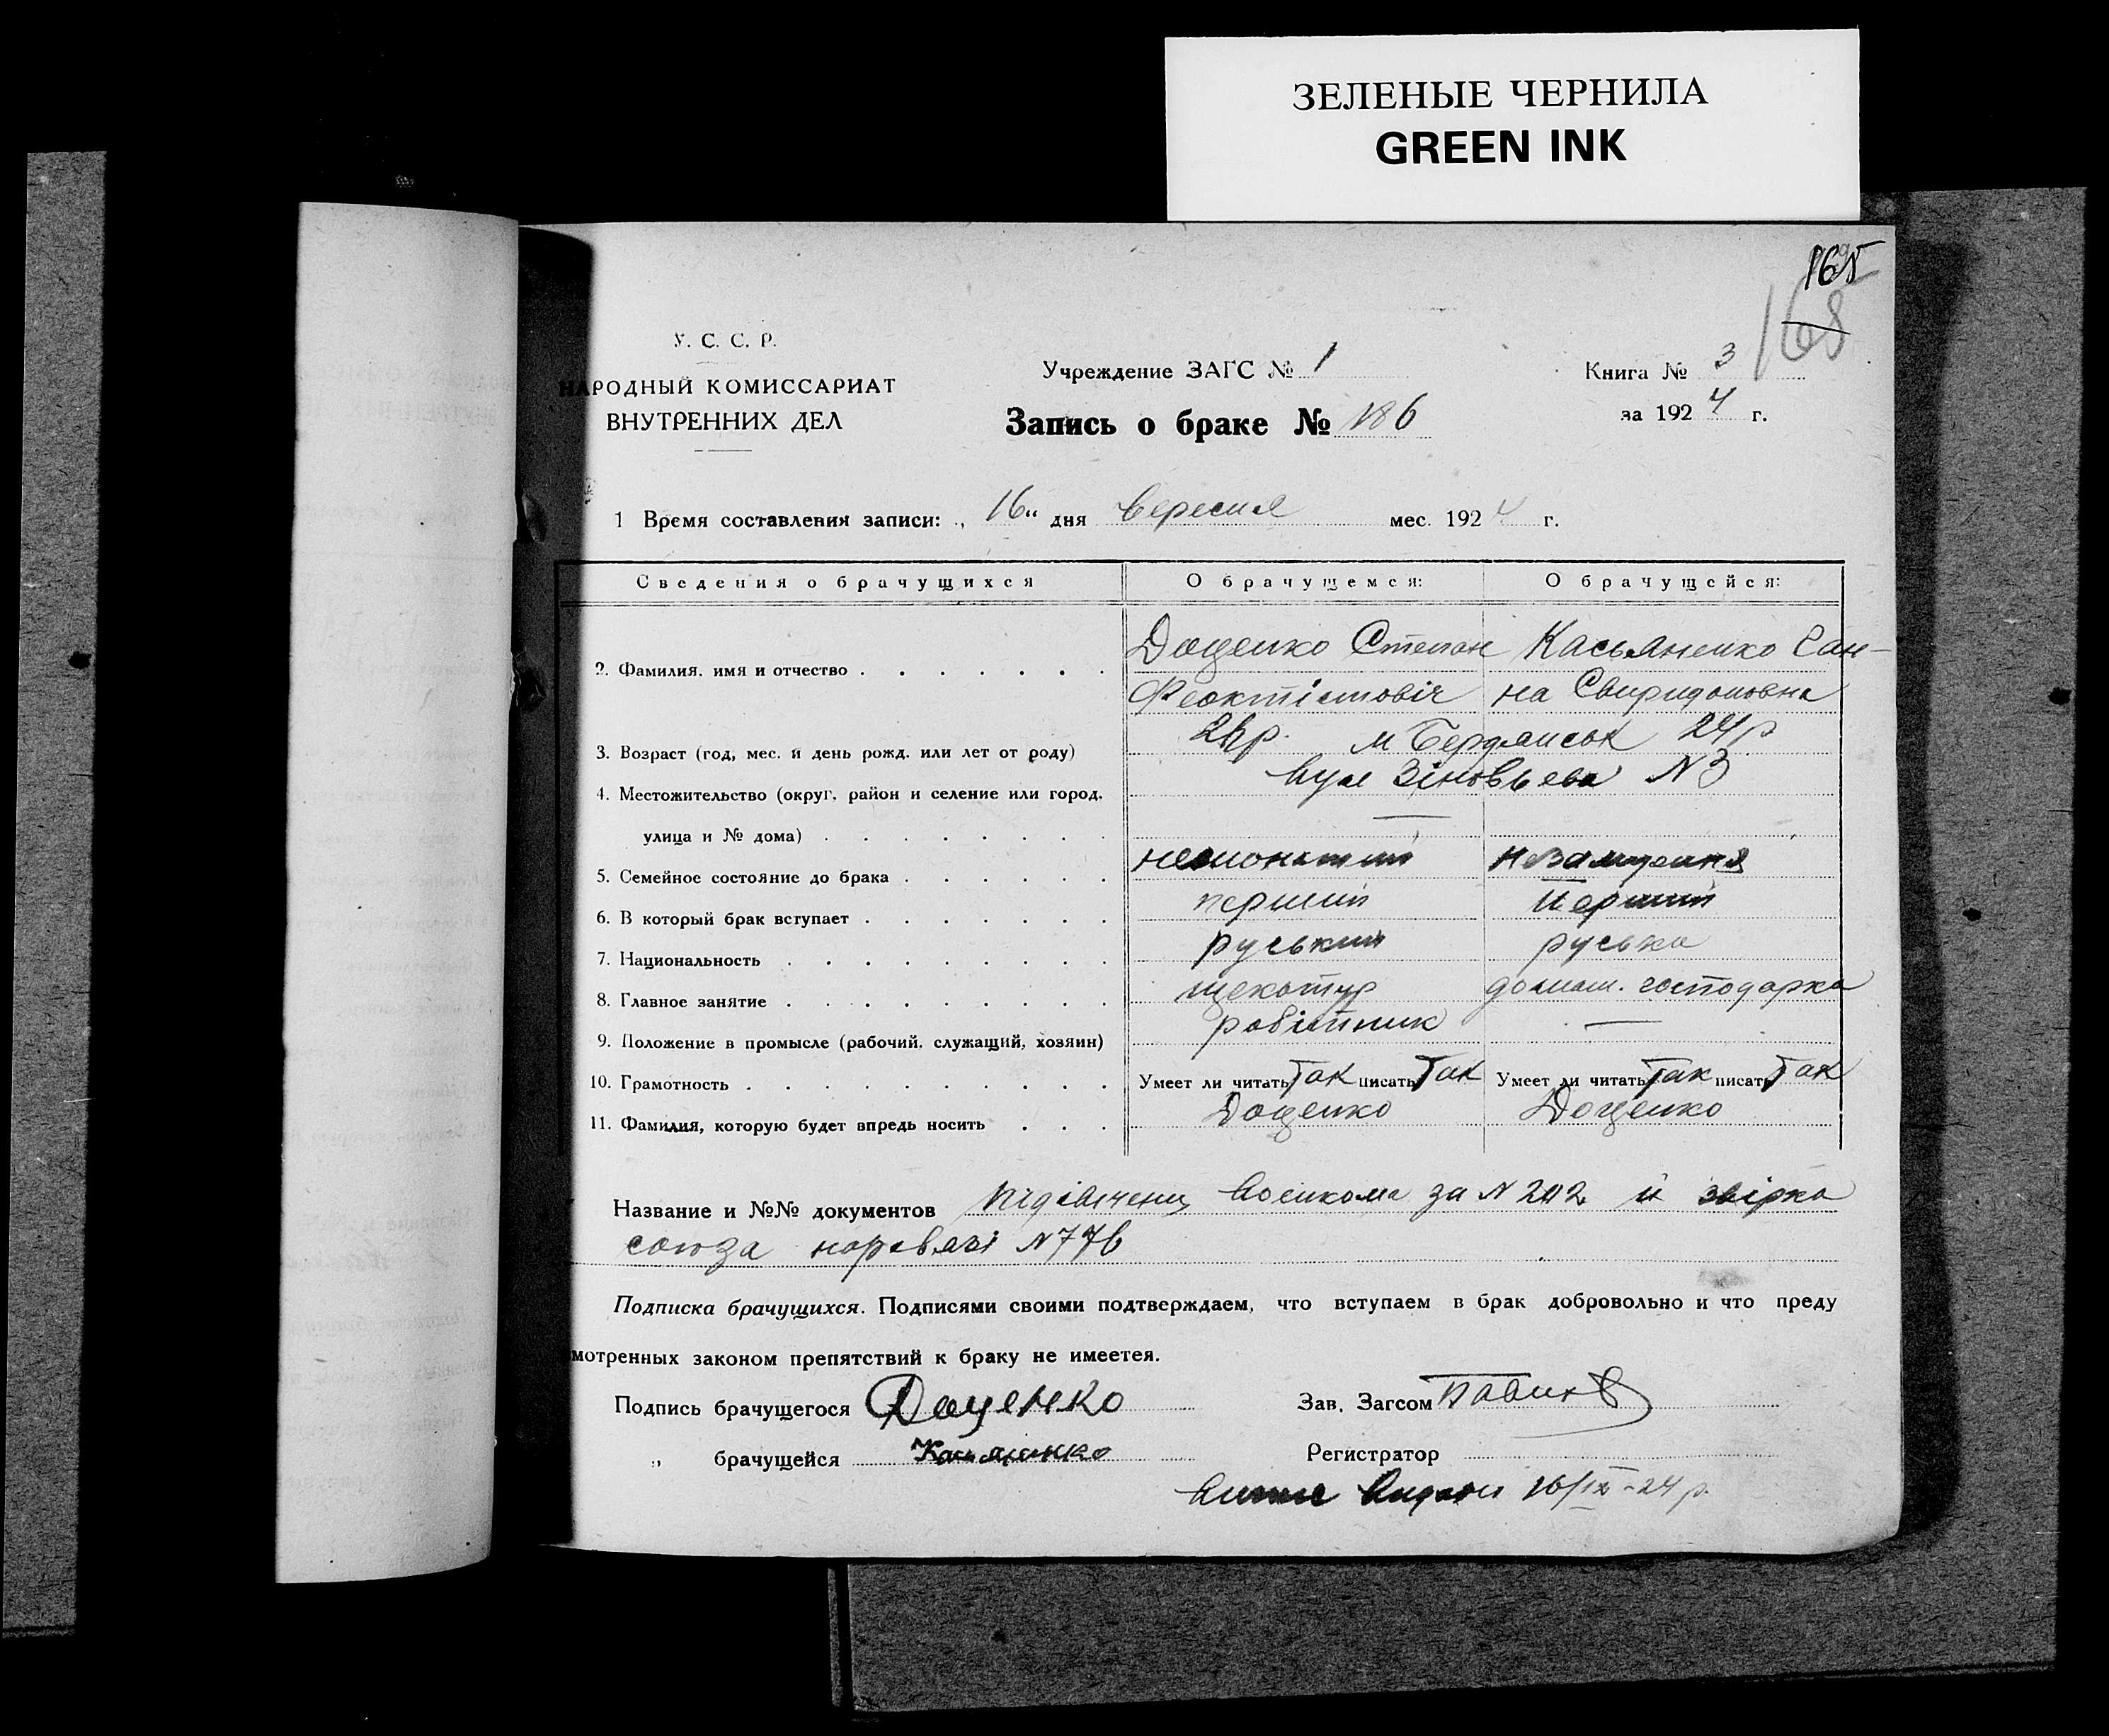 ЗЕЛЕНЫЕ ЧЕРНИЛА
GREEN INK
165
168
У. С. С. Р.
НАРОДНЫЙ КОМИССАРИАТ
ВНУТРЕННИХ ДЕЛ
Учреждение ЗАГС № 1
Запись о браке № 186
Книга № 3
за 1924 г.
1 Время составления записи: „ 16 " дня вересня мес. 1924 г.
Сведения о брачущихся
О брачущемся:
О брачущейся:
2. Фамилия, имя и отчество
Доценко Степан
Феоктістовіч
Касьяненко Ган-
на Свиридоновна
3. Возраст (год, мес. и день рожд. или лет от роду)
р. м Бердянськ 24р
4. Местожительство (округ, район и селение или город,
улица и № дома)
вул Зіновьева N3
5. Семейное состояние до брака
6. В который брак вступает
перший
Перший
7. Национальность
руський
руська
8. Главное занятие
щекатур
домаш. господарка
9. Положение в промысле (рабочий, служащий, хозяин)
робітник
—
10. Грамотность
Умеет ли читать Так писать Так
Умеет ли читать Так писать Так
11. Фамилия, которую будет впредь носить
Доценко
Доценко
Название и №№ документов за N 202 й
союза N 776
Подписка брачущихся. Подписями своими подтверждаем, что вступаем в брак добровольно и что преду
мотренных законом препятствий к браку не имеется.
Подпись брачущегося Доценко
Зав. Загсом
„ брачущейся Касьяненко
Регистратор
16/IX-24 р.